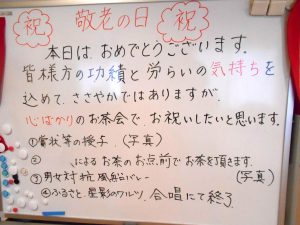 祝 敬老の日 祝
本日は、おめでとうございます。
皆様方の功績と労らいの気持ちを
込めて、ささやかではありますが、
心ばかりのお茶会で、お祝いしたいと思います。
①賞状等の授与 (写真)
② によるお茶のお点前でお茶を頂きます。
③男女対抗風船バレー (写真)
④ふるさと、星影のワルツ、合唱にて終了